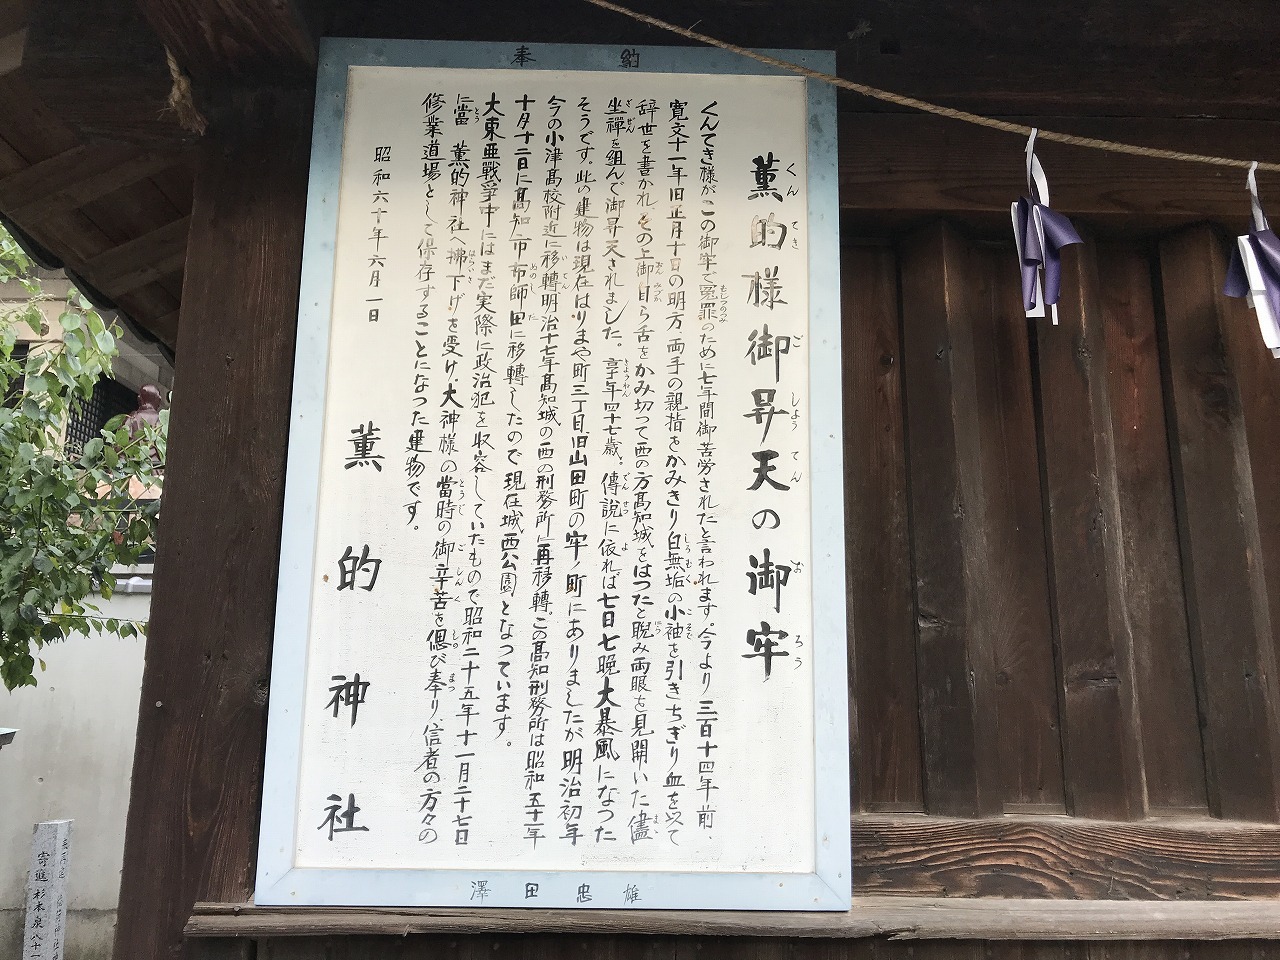 奉納
薫的様御昇天の御牢
くんてき ご しょうてん おろう
くんてき様がこの御牢で冤罪のために七年間御苦労されたと言われます。今より三百十四年前、
もじつのつみ
寛文十一年旧正月十日の明方、両手の親指をかみきり白無垢の小袖を引きちぎり血を以て
しろむく こそで
辞世を書かれ、その上御自ら舌をかみ切って西の方髙知城をはつたと睨み両眼を見開いた儘
おん みづか まま
坐禅を組んで御昇天されました。享年四十七歳。傳說に依れば七日七晩大暴風になつた
ざぜん きようねん でんせつ よ
そうです。此の建物は現在はりまや町三丁目、旧山田町の牢ノ町にありましたが明治初年
今の小津髙校附近に移轉明治十七年髙知城の西の刑務所に再移轉。この髙知刑務所は昭和五十一年
いてん
十月十二日に髙知市布師田に移轉したので現在城西公園となつています。
ぬのしだ
大東亜戦爭中にはまだ実際に政治犯を収容していたもので昭和二十五年十一月二十七日
に當薫的神社へ拂下げを受け、大神様の當時の御辛苦を偲び奉り信者の方々の
とう はらいさ とうじ ごしんく しの まつ
修業道場として保存することになった建物です。
昭和六十年六月一日
薫的神社
澤田忠雄
寄進 杉本泉八十一